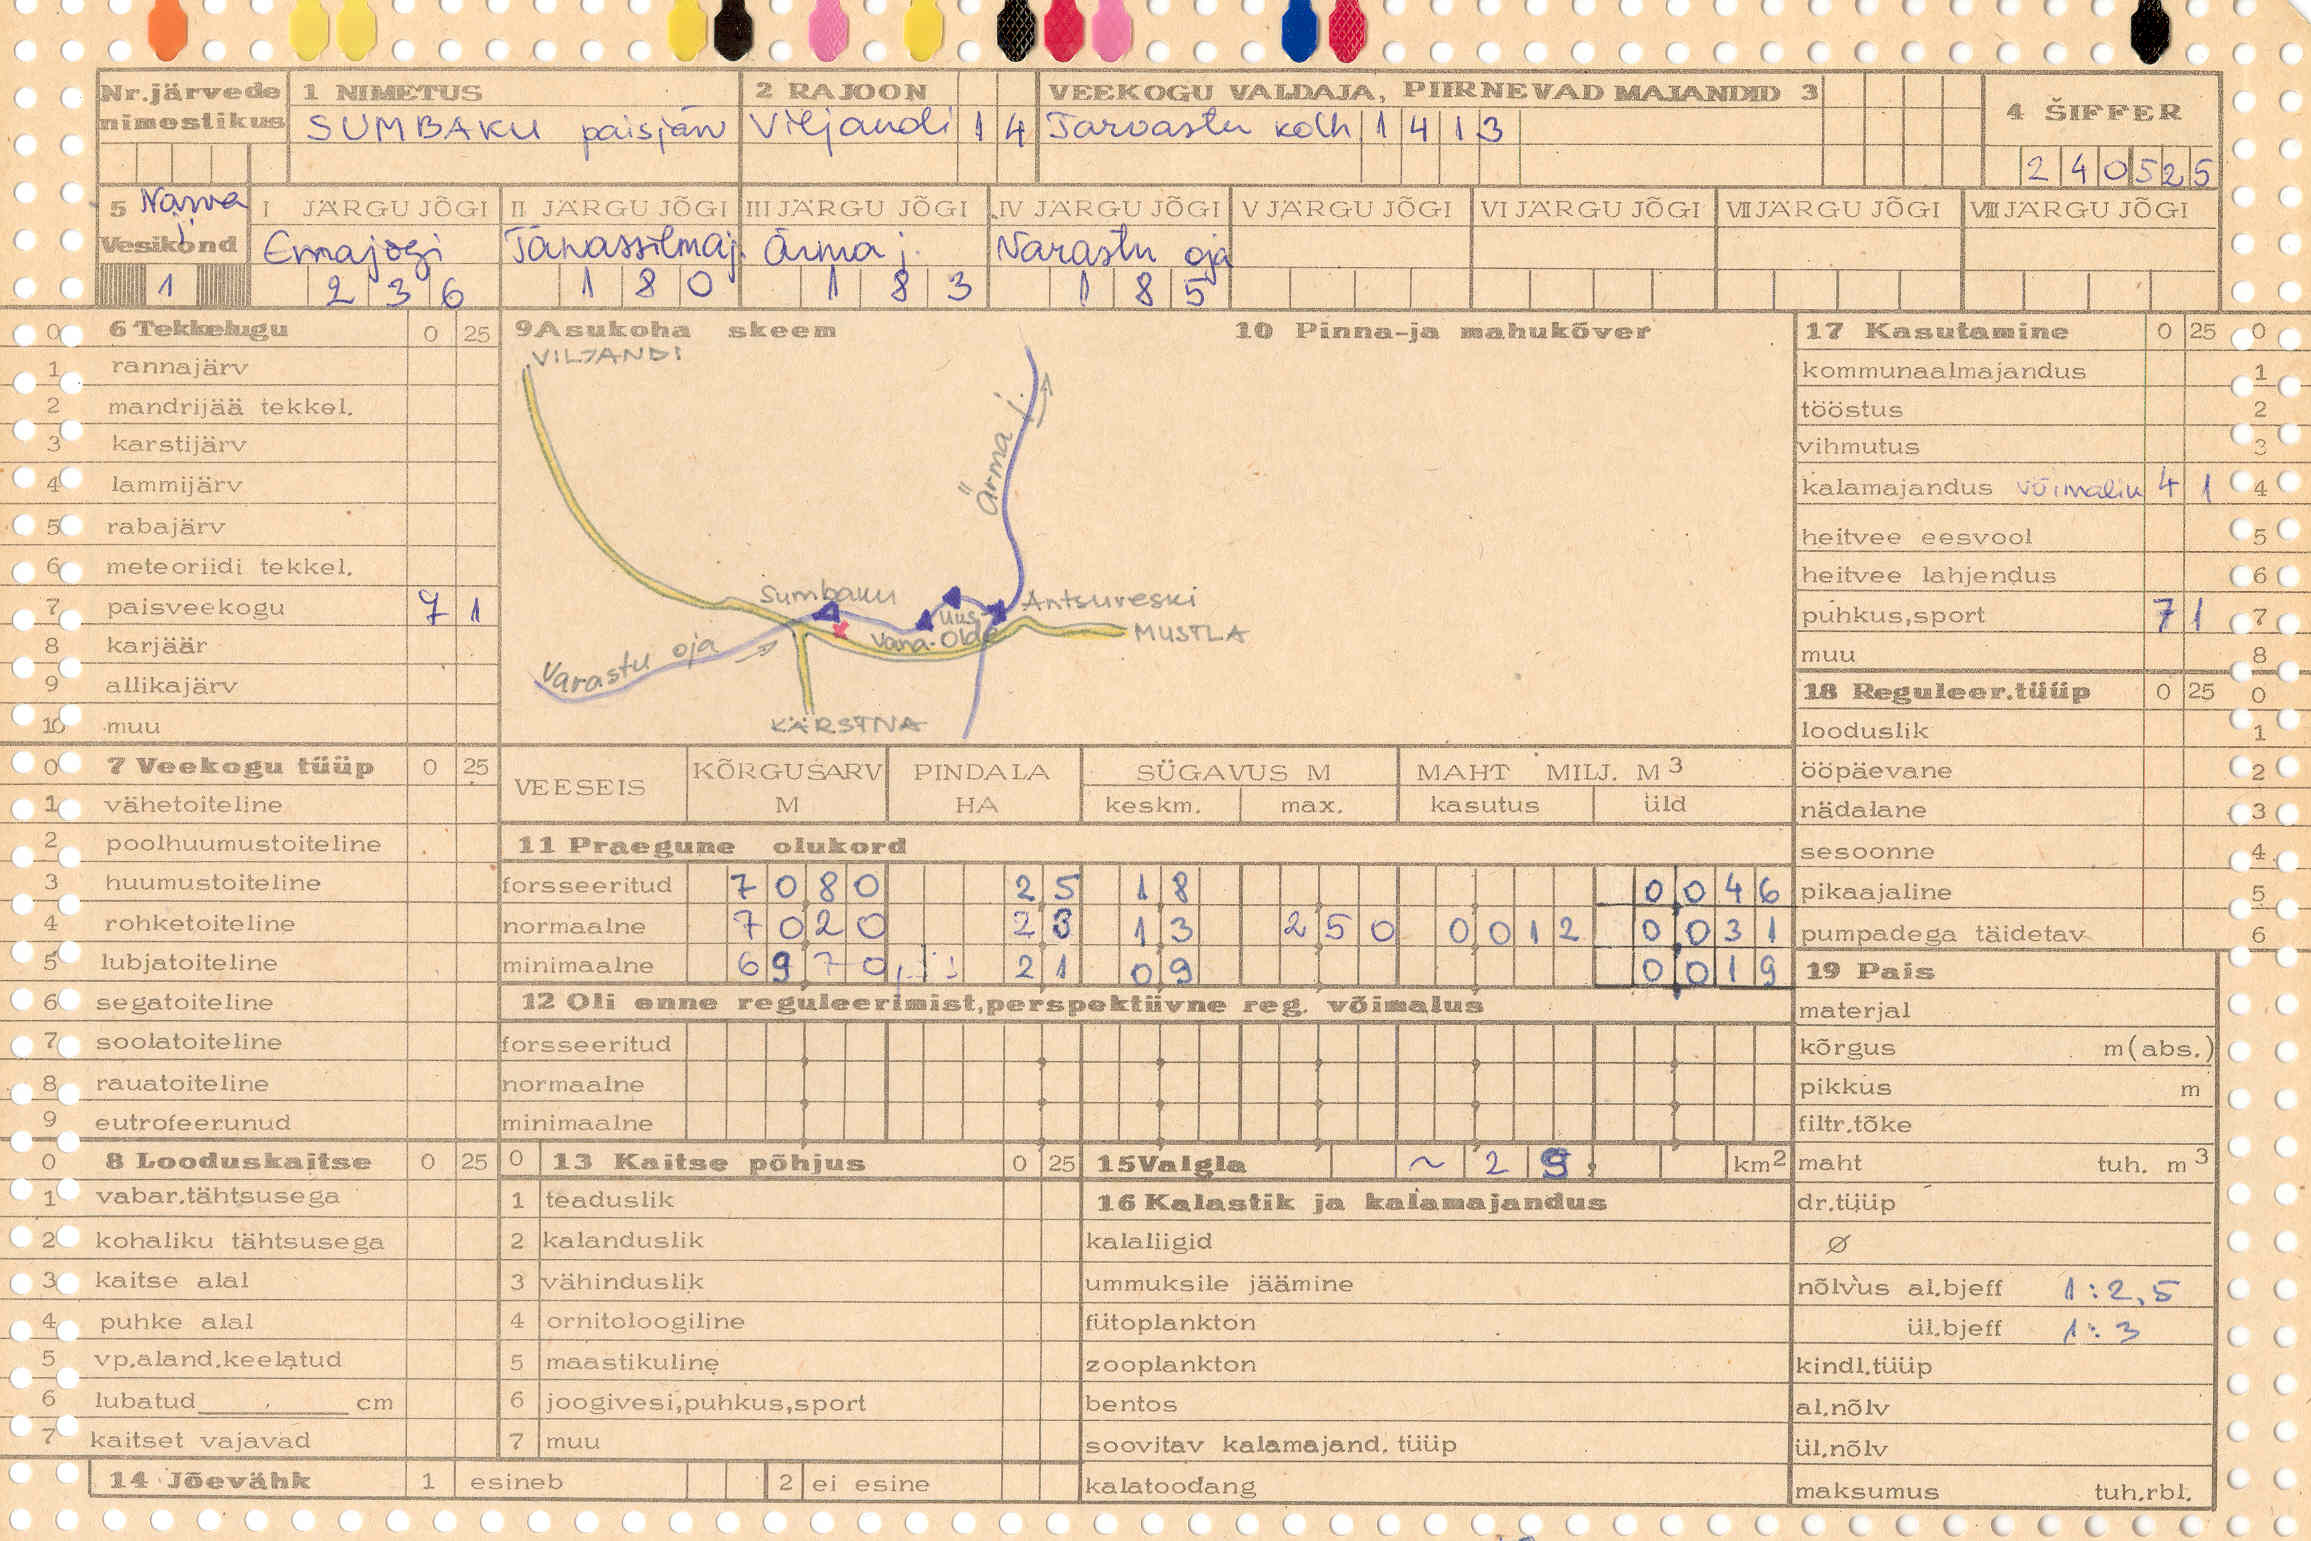 Nr.järvede nimestikus
1 NIMETUS
SUMBAKU paisjärv
2 RAJOON
Viljandi 1 4
VEEKOGU VALDAJA, PIIRNEVAD MAJANDID 3
Tarvastu kolh. 1 4 1 3
4 ŠIFFER
2 4 0 5 2 5
5 Narva j.
Vesikond
1
I JÄRGU JÕGI
Emajõgi
2 3 6
II JÄRGU JÕGI
Tänassilmaj.
1 8 0
III JÄRGU JÕGI
Ärma j.
1 8 3
IV JÄRGU JÕGI
Varastu oja
1 8 5
V JÄRGU JÕGI
VI JÄRGU JÕGI
VII JÄRGU JÕGI
VIII JÄRGU JÕGI
0 6 Tekkelugu 0 25
1 rannajärv
2 mandrijää tekkel.
3 karstijärv
4 lammijärv
5 rabajärv
6 meteoriidi tekkel.
7 paisveekogu 7 1
8 karjäär
9 allikajärv
10 muu
0 7 Veekogu tüüp 0 25
1 vähetoiteline
2 poolhuumustoiteline
3 huumustoiteline
4 rohketoiteline
5 lubjatoiteline
6 segatoiteline
7 soolatoiteline
8 rauatoiteline
9 eutrofeerunud
0 8 Looduskaitse 0 25
1 vabar.tähtsusega
2 kohaliku tähtsusega
3 kaitse alal
4 puhke alal
5 vp.aland.keelatud
6 lubatud cm
7 kaitset vajavad
14 Jõevähk 1 esineb 2 ei esine
9 Asukoha skeem
10 Pinna-ja mahukõver
VILJANDI
Ärma j.
Sumbaku
Antsureski
Uus
Vana-Olde
MUSTLA
Varastu oja
KÄRSTNA
VEESEIS
KÕRGUSARV M
PINDALA HA
SÜGAVUS M
keskm. max.
MAHT MILJ. M3
kasutus üld
11 Praegune olukord
forsseeritud 7 0 8 0 2 5 1 8 0 0 4 6
normaalne 7 0 2 0 2 3 1 3 2 5 0 0 0 1 2 0 0 3 1
minimaalne 6 9 7 0 2 1 0 9 0 0 1 9
12 Oli enne reguleerimist,perspektiivne reg. võimalus
forsseeritud
normaalne
minimaalne
0 13 Kaitse põhjus 0 25
1 teaduslik
2 kalanduslik
3 vähinduslik
4 ornitoloogiline
5 maastikuline
6 joogivesi,puhkus,sport
7 muu
15 Valgla ~ 2 9, km2
16 Kalastik ja kalamajandus
kalaliigid
ummuksile jäämine
fütoplankton
zooplankton
bentos
soovitav kalamajand. tüüp
kalatoodang
17 Kasutamine 0 25 0
kommunaalmajandus 1
tööstus 2
vihmutus 3
kalamajandus võimalik 4 1 4
heitvee eesvool 5
heitvee lahjendus 6
puhkus,sport 7 1 7
muu 8
18 Reguleer.tüüp 0 25 0
looduslik 1
ööpäevane 2
nädalane 3
sesoonne 4
pikaajaline 5
pumpadega täidetav 6
19 Pais
materjal
kõrgus m(abs.)
pikkus m
filtr.tõke
maht tuh. m3
dr.tüüp
Ø
nõlvus al.bjeff 1:2,5
ül.bjeff 1:3
kindl.tüüp
al.nõlv
ül.nõlv
maksumus tuh.rbl.